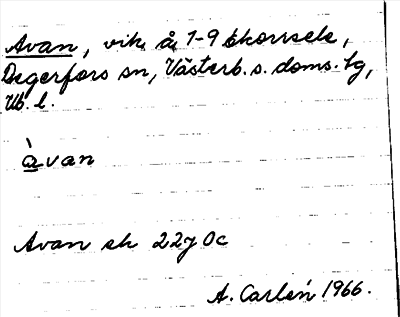 Avan, vik å 1-9 Ekorrsele,
Degerfors sn, Västerb. s. doms. tg,
Vb. l.
àvan
Avan ek 22J 0c
A. Carlén 1966.